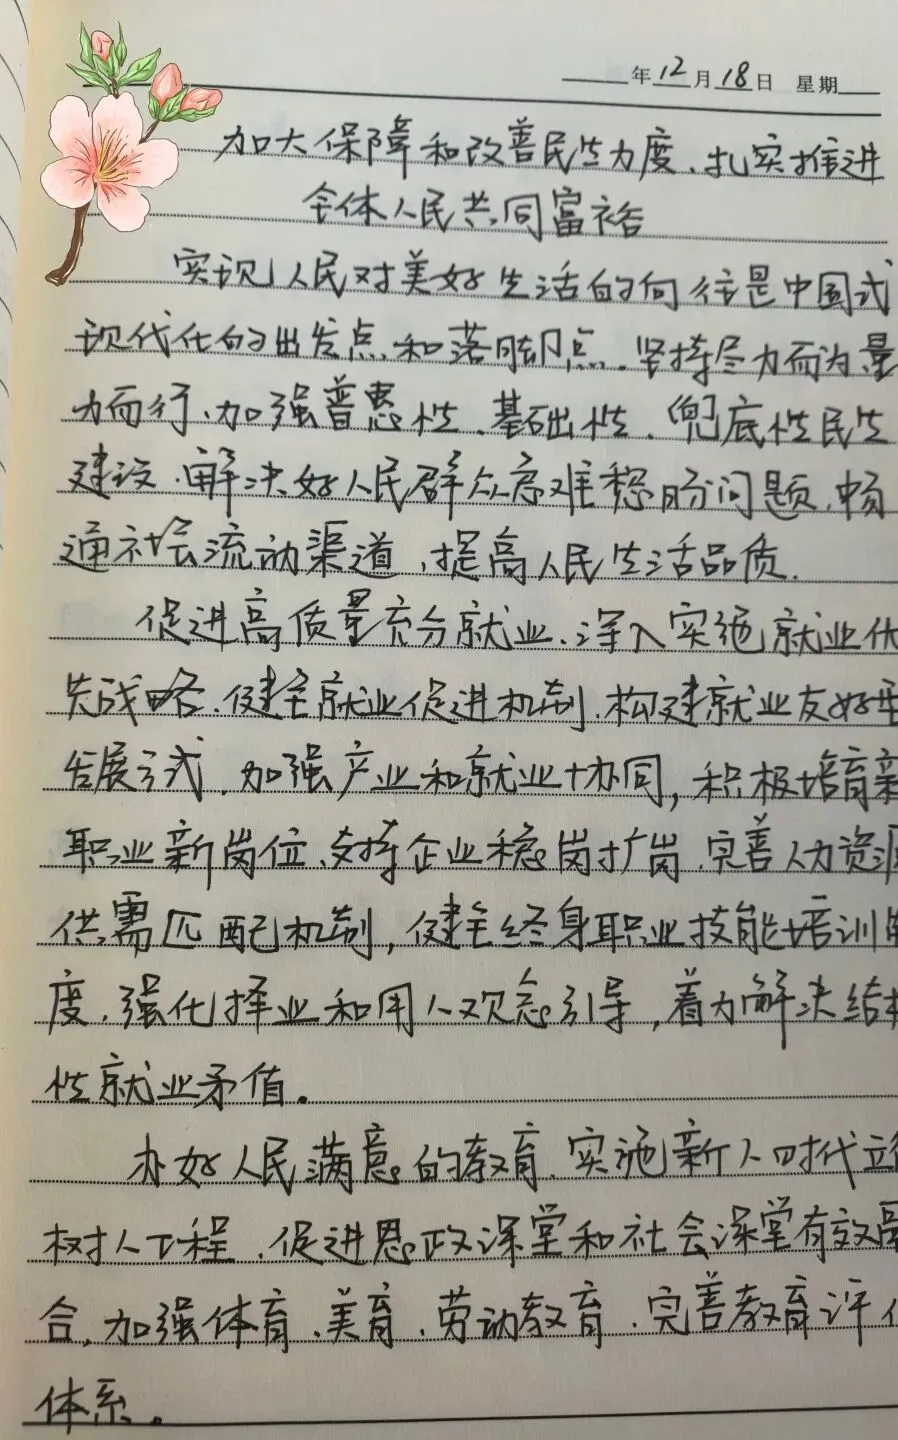 年12月18日 星期
加大保障和改善民生力度、扎实推进
全体人民共同富裕
实现人民对美好生活的向往是中国式
现代化的出发点和落脚点.坚持尽力而为量
力而行、加强普惠性、基础性、兜底性民生
建设.解决好人民群众急难愁盼问题,畅
通社会流动渠道,提高人民生活品质.
促进高质量充分就业、深入实施就业优
先战略.健全就业促进机制.构建就业友好型
发展方式.加强产业和就业协同,积极培育新
职业新岗位、支持企业稳岗扩岗.完善人力资源
供需匹配机制,健全终身职业技能培训制
度.强化择业和用人观念引导,着力解决结构
性就业矛值。
办好人民满意的教育.实施新人时代立德
树人工程.促进思政课堂和社会课堂有效融
合.加强体育、美育、劳动教育.完善教育评价
体系。